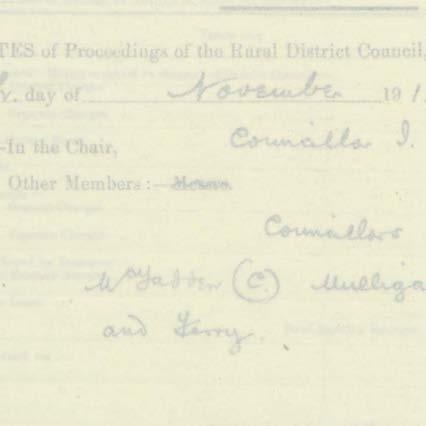 TES of Proceedings of the Rural District Council,
day of November 191
-In the Chair, Councillor I.
Other Members:— Messrs.
Councillors
McFadden (C.) Mulliga
and Ferry.